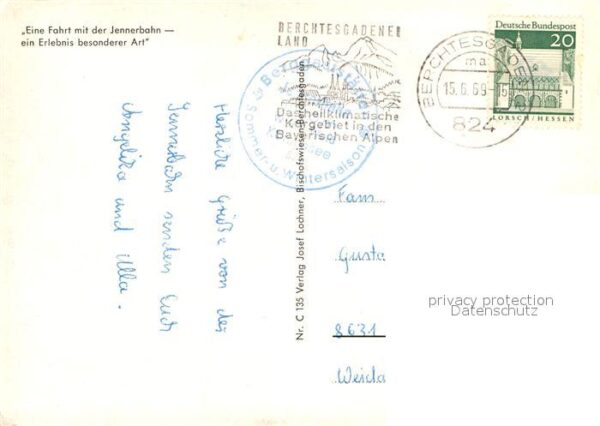 „Eine Fahrt mit der Jennerbahn —
ein Erlebnis besonderer Art"
BERCHTESGADENER
LAND
Das heilklimatische
Kurgebiet in den
Bayerischen Alpen
Sommer- u. Wintersaison
BERCHTESGADEN
ma
15.6.69
824
Deutsche Bundespost
20
LORSCH/HESSEN
Herzliche Grüße von der
Jennerbahn senden Euch
Angelika und Ulla.
Nr. C 135 Verlag Josef Lochner, Bischofswiesen-Berchtesgaden
Fam.
Gusta
8631
Weida
privacy protection
Datenschutz